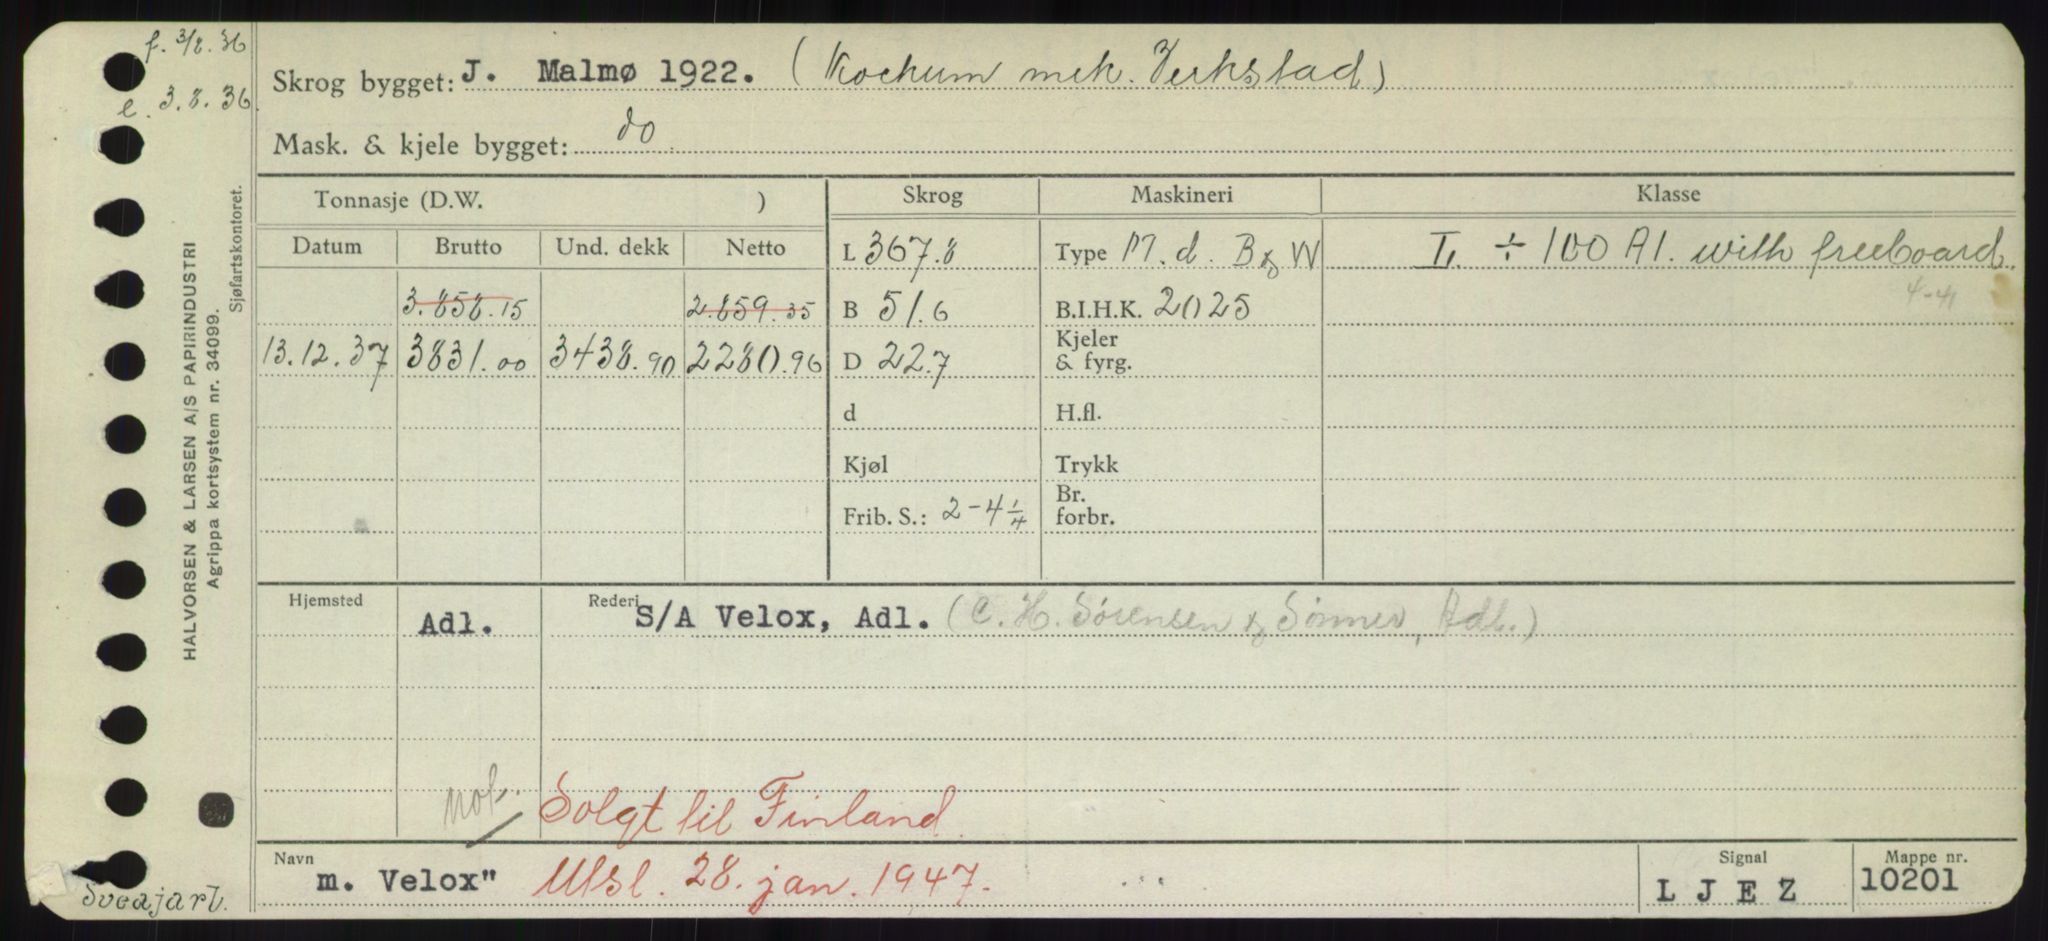 f. 3/8. 36
e. 3.8.36.
HALVORSEN & LARSEN A/S PAPIRINDUSTRI
Agrippa kortsystem nr. 34099.
Sjøfartskontoret.
Skrog bygget: J. Malmø 1922. (Kockum mek. Verkstad)
Mask. & kjele bygget: do
Tonnasje (D.W. ) Skrog Maskineri Klasse
Datum Brutto Und. dekk Netto L 367.8 Type M.d. B & W L. ÷ 100 A1. with freeboard.
4-41
3.858.15 2.859.35 B 51.6 B.I.H.K. 2025
13.12.37 3831.00 3438.90 2280.96 D 22.7 Kjeler & fyrg.
d H.fl.
Kjøl Trykk
Frib. S.: 2-4 1/4 Br. forbr.
Hjemsted Adl. Rederi S/A Velox, Adl. (C. H. Sørensen & Sønner, Adl.)
not. Solgt til Finland.
Navn m. Velox" Utsl. 28. jan. 1947. Signal LJEZ Mappe nr. 10201
Sveajarl.